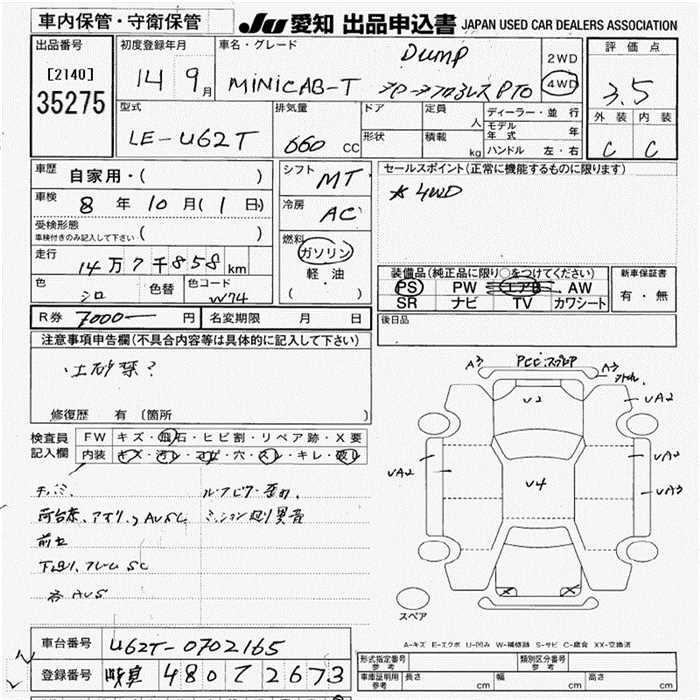 車内保管・守衛保管
JU 愛知 出品申込書 JAPAN USED CAR DEALERS ASSOCIATION
出品番号
[2140]
35275
初度登録年月
14 9月
車名・グレード
DUMP
MINICAB-T PTO
2WD
4WD
評価点
3.5
外装 内装
C C
型式
LE-U62T
排気量
660 CC
ドア
形状
定員 人
積載 kg
ディーラー・並行
モデル年式 年
ハンドル 左・右
車歴
自家用・( )
車検
8年10月(1日)
受検形態
車検付きのみ記入して下さい ( )
走行
14万7千858km
色
シロ
色替
色コード
W74
シフト
MT
冷房
AC
燃料
ガソリン
軽油
( ・ )
セールスポイント(正常に機能するものに限ります)
☆4WD
装備品(純正品に限り○をつけてください)
PS PW エアB AW
SR ナビ TV カワシート
新車保証書
有・無
後日品
R券 7000- 円
名変期限 月 日
注意事項申告欄(不具合内容等は具体的に記入して下さい)
修復歴 有(箇所
検査員記入欄
FW キズ・飛石・ヒビ割・リペア跡・X要
内装 キズ・汚レ・コゲ・穴・スレ・キレ・破レ
A3 A3
U2
UA2
UA2
UA2
UA3
U4
スペア
A-キズ E-エクボ U-凹み W-補修跡 S-サビ C-腐食 XX-交換済
車台番号 U62T-0702165
登録番号 岐阜 480 て 2673
形式指定番号 参考
類別区分番号 参考
車庫証明用 参考 長さ cm 幅 cm 高さ cm